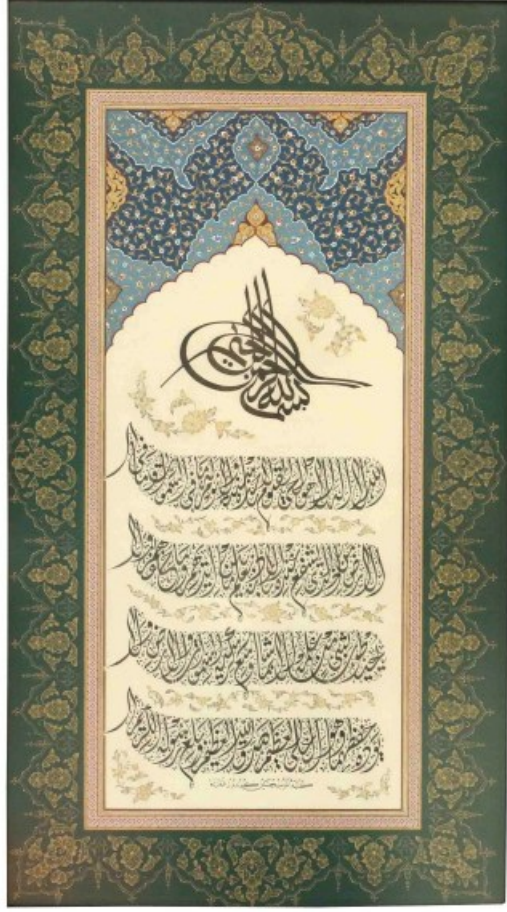 بسم الله الرحمن الرحيم
الله لا اله الا هو الحي القيوم لا تأخذه سنة ولا نوم له ما في السموات وما في
الارض من ذا الذي يشفع عنده الا باذنه يعلم ما بين ايديهم وما خلفهم ولا
يحيطون بشيء من علمه الا بما شاء وسع كرسيه السموات والارض ولا
يؤده حفظهما وهو العلي العظيم صدق الله العظيم وبلغ رسوله الكريم